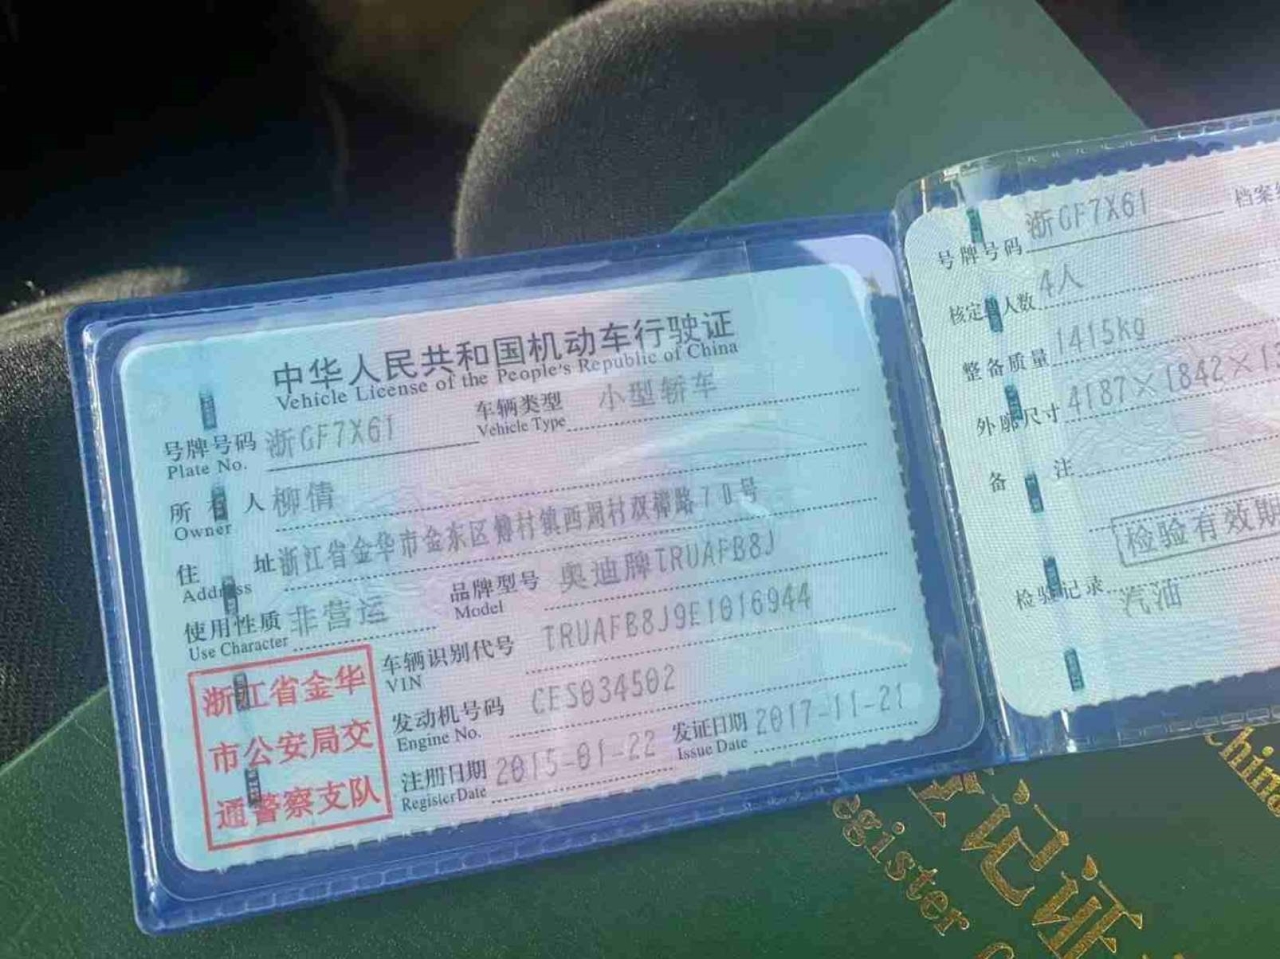 中华人民共和国机动车行驶证
Vehicle License of the People's Republic of China
号牌号码 浙GF7X61 车辆类型 小型轿车
Plate No. Vehicle Type
所有人 柳倩
Owner
住址 浙江省金华市金东区傅村镇西周村双樟路70号
Address
使用性质 非营运 品牌型号 奥迪牌TRUAFB8J
Use Character Model
车辆识别代号 TRUAFB8J9E1016944
VIN
发动机号码 CES034502
Engine No.
注册日期 2015-01-22 发证日期 2017-11-21
Register Date Issue Date
浙江省金华
市公安局交
通警察支队
号牌号码 浙GF7X61 档案
核定载人数 4人
整备质量 1415kg
外廓尺寸 4187×1842×13
备注
检验有效期
检验记录
汽油
登记证
Register
China